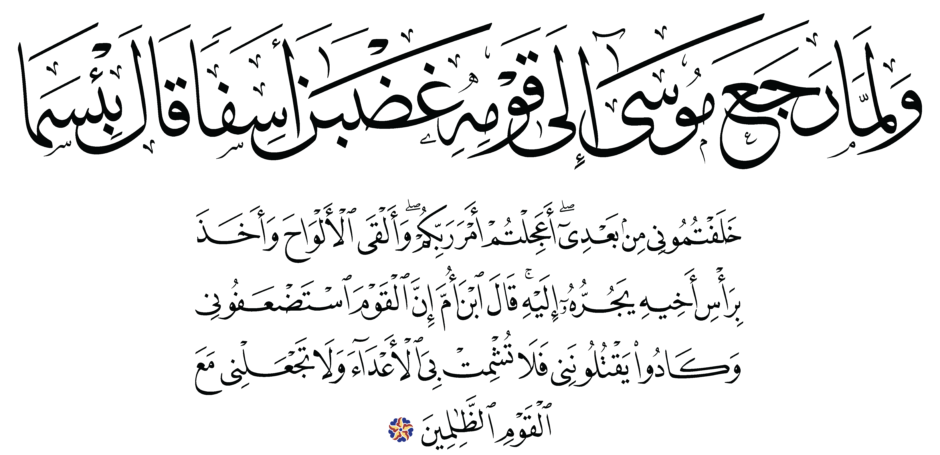 وَلَمَّا رَجَعَ مُوسَىٰٓ إِلَىٰ قَوْمِهِۦ غَضْبَـٰنَ أَسِفًا قَالَ بِئْسَمَا
خَلَفْتُمُونِى مِنۢ بَعْدِىٓ ۖ أَعَجِلْتُمْ أَمْرَ رَبِّكُمْ ۖ وَأَلْقَى ٱلْأَلْوَاحَ وَأَخَذَ
بِرَأْسِ أَخِيهِ يَجُرُّهُۥٓ إِلَيْهِ ۚ قَالَ ٱبْنَ أُمَّ إِنَّ ٱلْقَوْمَ ٱسْتَضْعَفُونِى
وَكَادُوا۟ يَقْتُلُونَنِى فَلَا تُشْمِتْ بِىَ ٱلْأَعْدَآءَ وَلَا تَجْعَلْنِى مَعَ
ٱلْقَوْمِ ٱلظَّـٰلِمِينَ